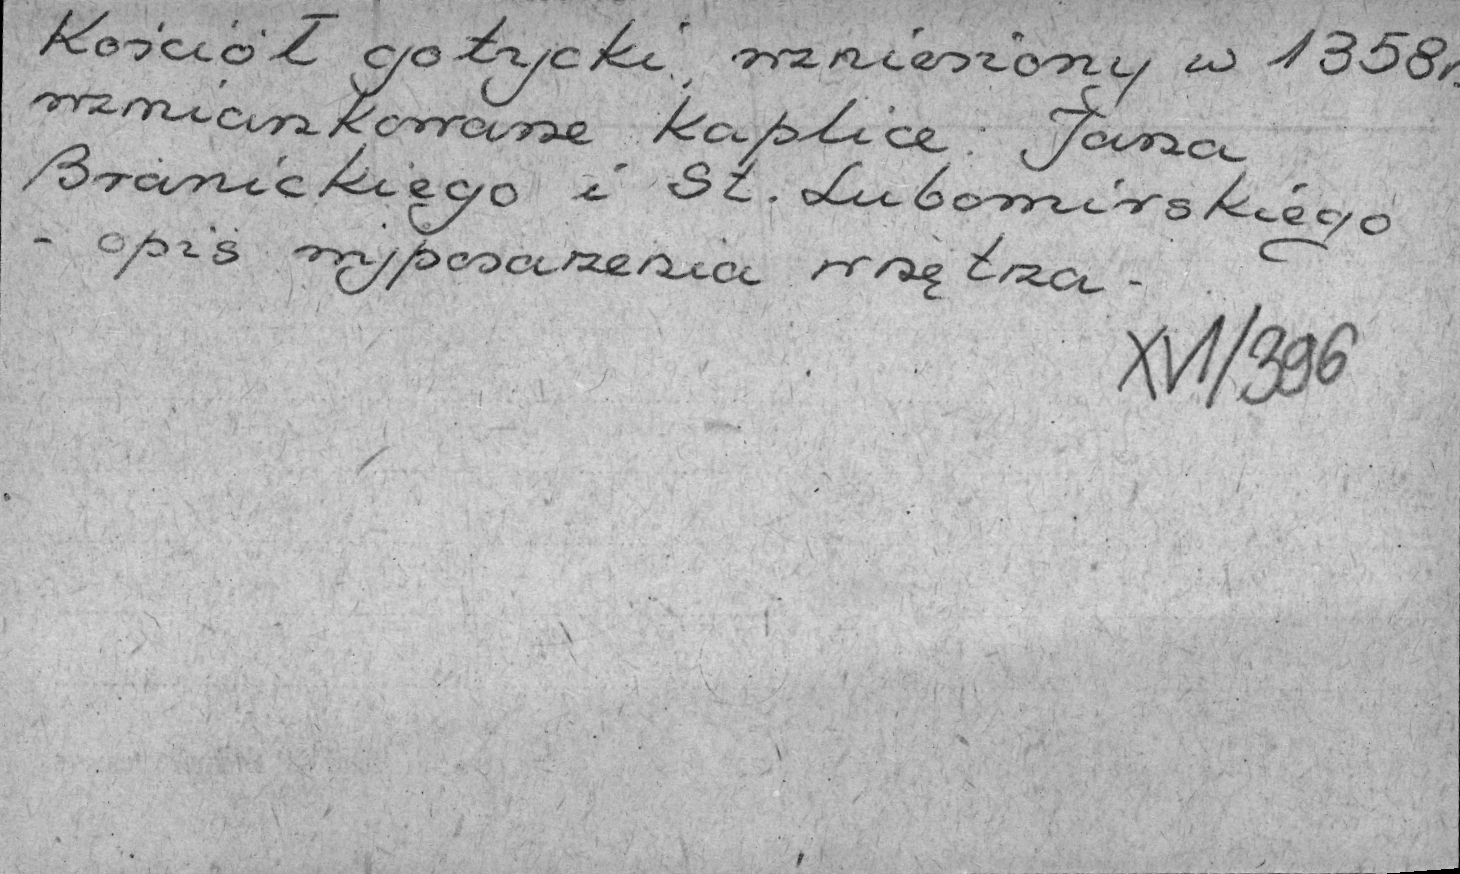 Kościół gotycki, wzniesiony w 1358r.
wzmiankowane kaplice: Jana
Branickiego i St. Lubomirskiego
- opis wyposażenia wnętrza -
XVI/396